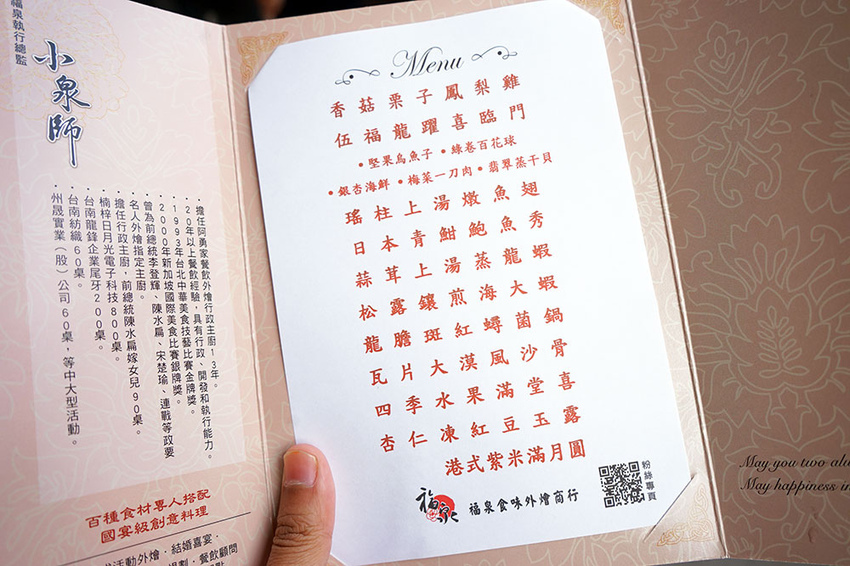 福泉執行總監
小泉師
・擔任阿勇家餐飲外燴行政主廚13年。
・20年以上餐飲經驗，具有行政、開發和執行能力。
・1993年台北中華美食技藝比賽金牌獎。
・2000年新加坡國際美食比賽銀牌獎。
・曾為前總統李登輝、陳水扁、宋楚瑜、連戰等政要
名人外燴指定主廚。
・擔任行政主廚，前總統陳水扁嫁女兒90桌。
・楠梓日月光電子科技800桌。
・台南龍鋒企業尾牙200桌。
・台南紡織60桌。
・州晟實業（股）公司60桌，等中大型活動。
百種食材專人搭配
國宴級創意料理
活動外燴・結婚喜宴・
規劃・餐飲顧問
Menu
香菇栗子鳳梨雞
伍福龍躍喜臨門
•堅果烏魚子 •綠卷百花球
•銀杏海鮮 •梅菜一刀肉 •翡翠蒸干貝
瑤柱上湯燉魚翅
日本青魽鮑魚秀
蒜茸上湯蒸龍蝦
松露鑲煎海大蝦
龍膽斑紅蟳菌鍋
瓦片大漠風沙骨
四季水果滿堂喜
杏仁凍紅豆玉露
港式紫米滿月圓
福泉
福泉食味外燴商行
粉絲專頁
May you two
May happiness in